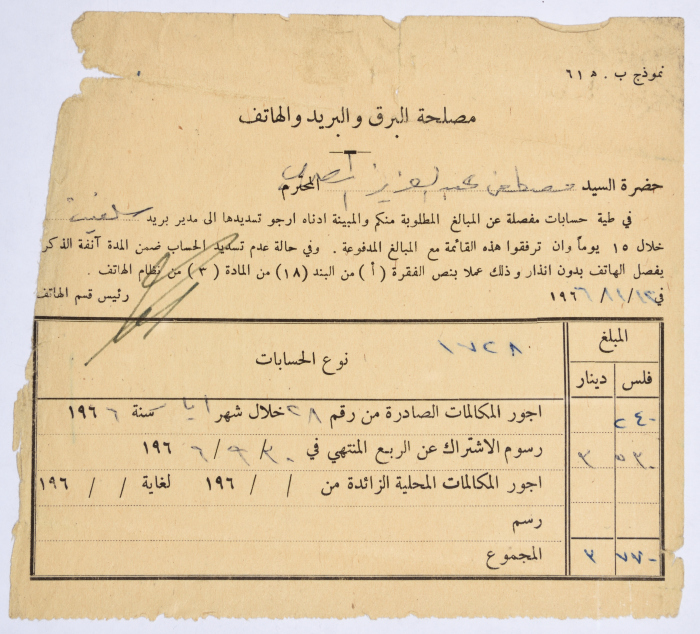 نموذج ب . ه ٦١
مصلحة البرق والبريد والهاتف
حضرة السيد مصطفى عبد العزيز المحترم
في طية حسابات مفصلة عن المبالغ المطلوبة منكم والمبينة ادناه ارجو تسديدها الى مدير بريد سلفيت
خلال ١٥ يوماً وان ترفقوا هذه القائمة مع المبالغ المدفوعة . وفي حالة عدم تسديد الحساب ضمن المدة آنفة الذكر
يفصل الهاتف بدون انذار وذلك عملا بنص الفقرة ( أ ) من البند (١٨) من المادة (٣) من نظام الهاتف .
في ١٩٦٦/٨/١٣ رئيس قسم الهاتف
المبلغ
١٧٢٨
نوع الحسابات
فلس دينار
٢٤٠ اجور المكالمات الصادرة من رقم ٢٨ خلال شهر سنة ١٩٦٦
٥٣٠ ٣ رسوم الاشتراك عن الربع المنتهي في ٣٠/٩/٦ ١٩٦
اجور المكالمات المحلية الزائدة من / / ١٩٦ لغاية / / ١٩٦
رسم
٧٧٠ ٣ المجموع